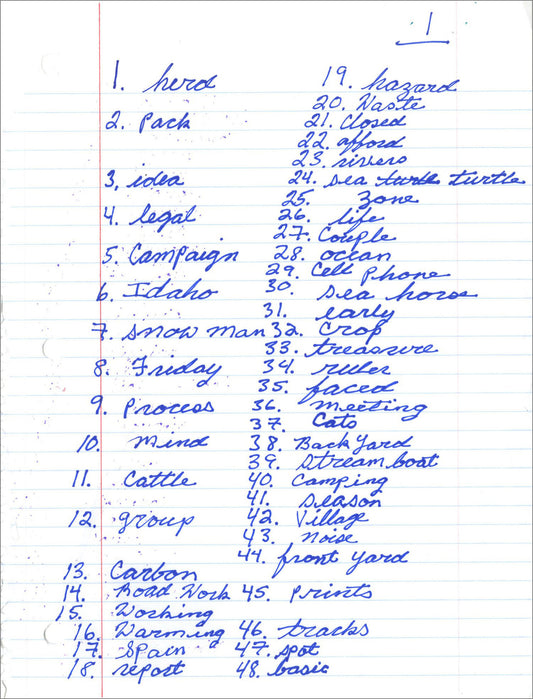 1
1. herd
2. Pack
3. idea
4. legal
5. Campaign
6. Idaho
7. snow man
8. Friday
9. Process
10. mind
11. Cattle
12. group
13. Carbon
14. Road Work
15. Working
16. Warming
17. Spain
18. report
19. hazard
20. Waste
21. Closed
22. afford
23. rivers
24. sea turtle turtle
25. zone
26. life
27. Couple
28. ocean
29. Cell Phone
30. sea horse
31. early
32. Crop
33. treasure
34. ruler
35. faced
36. meeting
37. Cats
38. Back Yard
39. stream boat
40. Camping
41. season
42. Village
43. noise
44. front yard
45. Prints
46. tracks
47. spot
48. basic